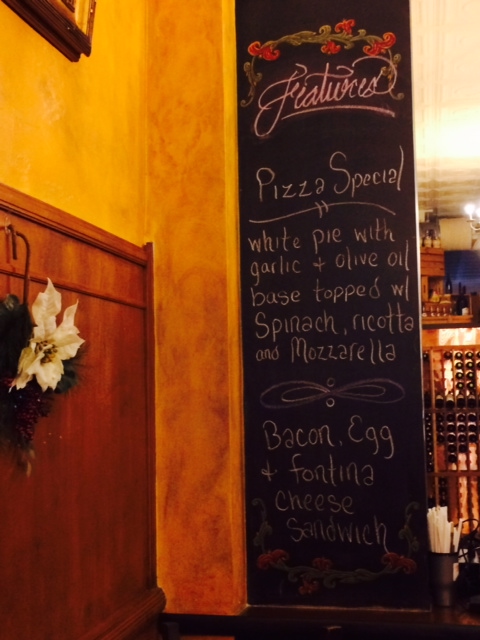 Features
Pizza Special
white pie with
garlic + olive oil
base topped w/
Spinach, ricotta
and Mozzarella
Bacon, Egg
+ fontina
cheese
Sandwich